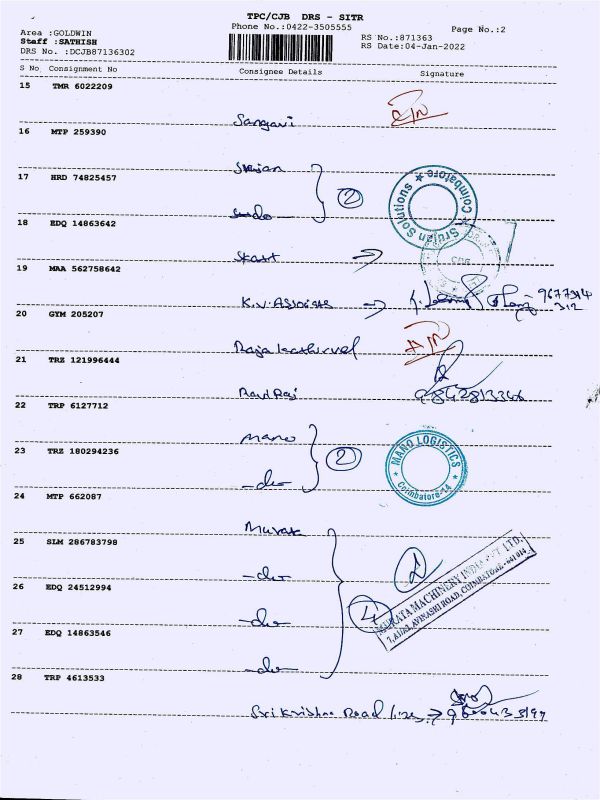 TPC/CJB DRS - SITR
Phone No.:0422-3505555
Page No.:2
Area :GOLDWIN
Staff :SATHISH
DRS No. :DCJB87136302
RS No.:871363
RS Date:04-Jan-2022
S No Consignment No Consignee Details Signature
15 TMR 6022209
Sangavi
16 MTP 259390
Srujan
17 HRD 74825457
-do-
2
Srujan Solutions ★ Coimbatore ★
18 EDQ 14863642
Skart
19 MAA 562758642
K.V. Associates
20 GYM 205207
Rajakathirvel
21 TRZ 121996444
Ravi Raj 9842813346
22 TRP 6127712
Mano
23 TRZ 180294236
-do-
2
★ MANO LOGISTICS ★ Coimbatore-14
24 MTP 662087
Murata
25 SLM 286783798
-do-
2
26 EDQ 24512994
-do-
4
MURATA MACHINERY INDIA PVT LTD.
AVINASHI ROAD, COIMBATORE - 641 014.
27 EDQ 14863546
-do-
28 TRP 4613533
Sri Krishna Road